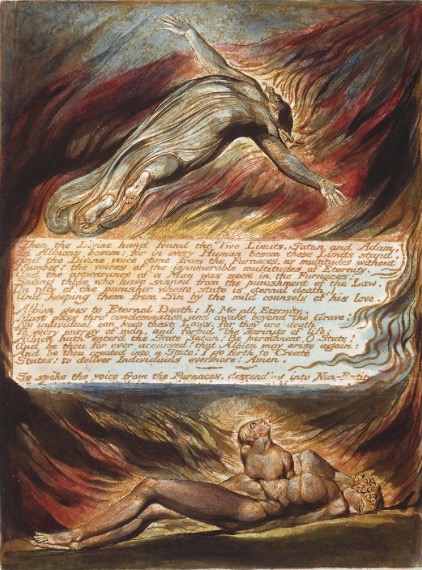 Then the Divine hand found the Two Limits, Satan and Adam,
In Albions bosom: for in every Human bosom those Limits stand.
And the Divine voice came from the Furnaces, as multitudes without
Number! the voices of the innumerable multitudes of Eternity.
And the appearance of a Man was seen in the Furnaces;
Saving those who have sinned from the punishment of the Law,
(In pity of the punisher whose state is eternal death,)
And keeping them from Sin by the mild counsels of his love.
Albion goes to Eternal Death: In Me all Eternity,
Must pass thro' condemnation, and awake beyond the Grave:
No individual can keep these Laws, for they are death
To every energy of man, and forbid the springs of life;
Albion hath enterd the State Satan! Be permanent O State!
And be thou for ever accursed! that Albion may arise again:
And be thou created into a State! I go forth to Create
States: to deliver Individuals evermore! Amen.
So spoke the voice from the Furnaces, descending into Non-Entity